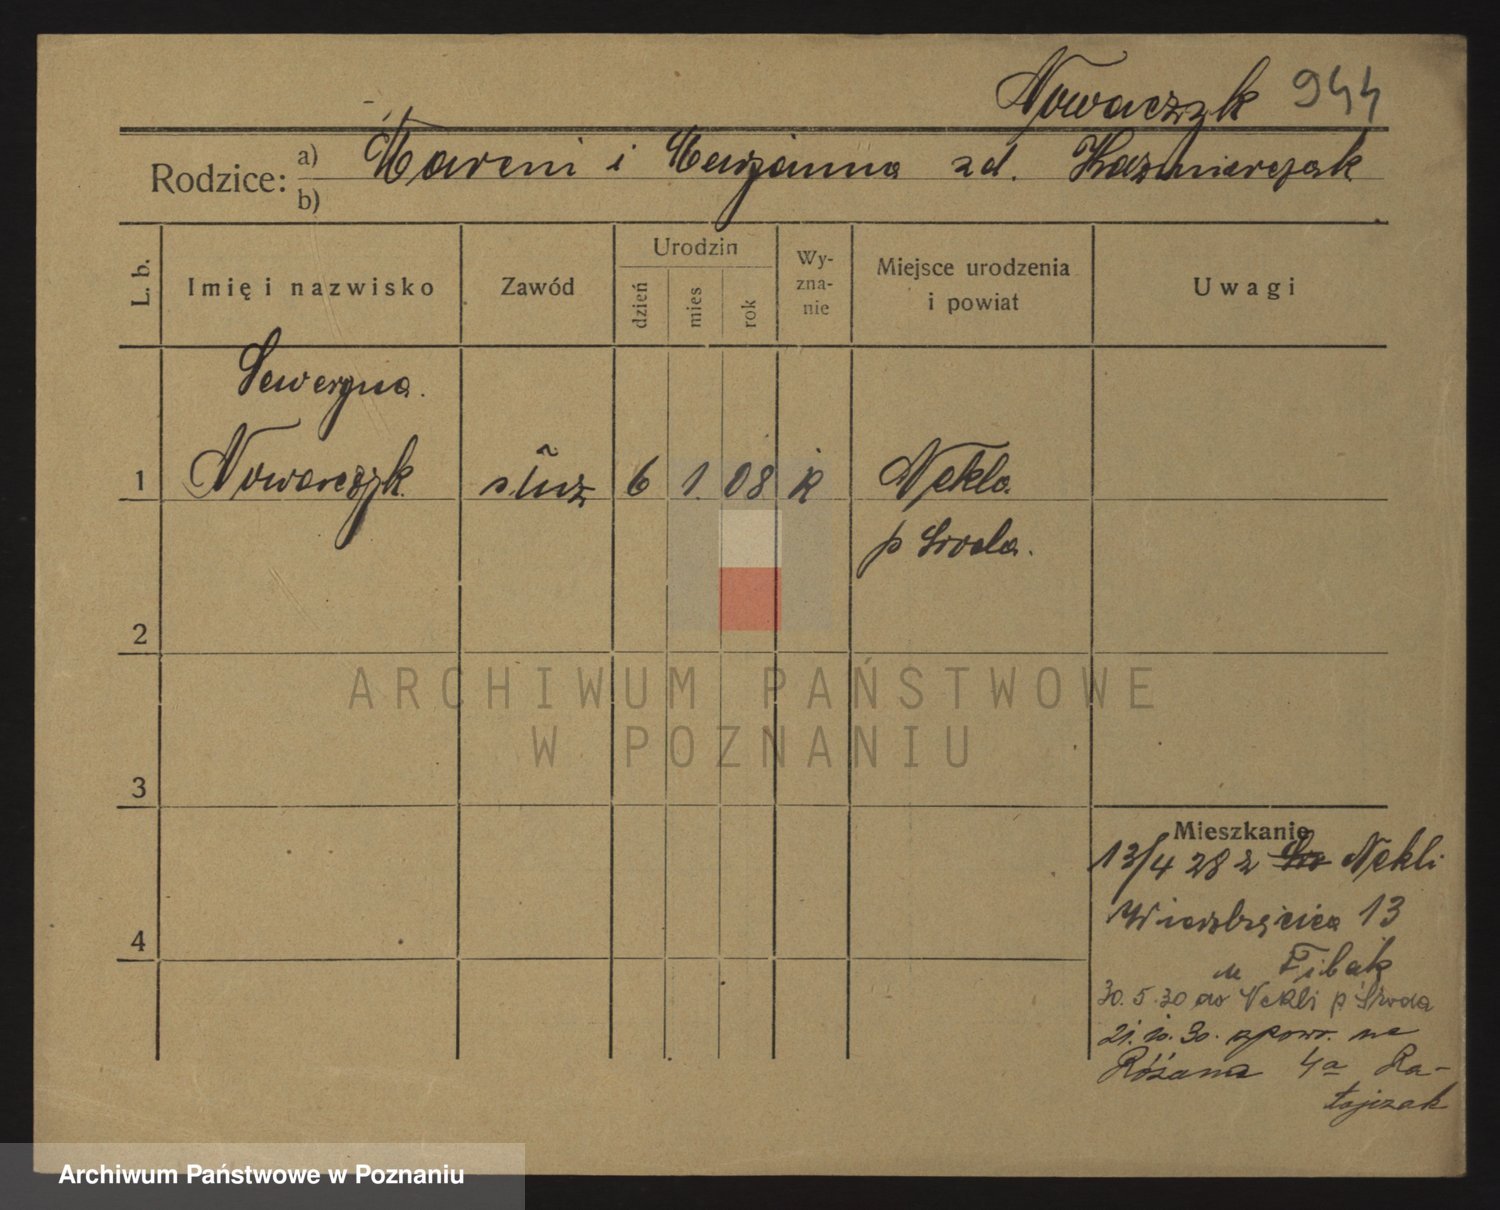 Nowaczyk 944
Rodzice: a) Marcin i Maryanna zd. Kaźmierczak
b)
L. b. Imię i nazwisko Zawód Urodzin dzień mies rok Wy-zna-nie Miejsce urodzenia i powiat Uwagi
Seweryna.
1 Nowaczyk służ 6 1. 08 k Nekla
p Sroda.
2
ARCHIWUM PAŃSTWOWE
W POZNANIU
3
Mieszkanie
13/4 28 z Nekli
4 Wierzbięcice 13
u Fibak
30.5.30 do Nekli p Środa
21.10.30. zpowr. na
Różana 4a Ra-
tajczak
Archiwum Państwowe w Poznaniu